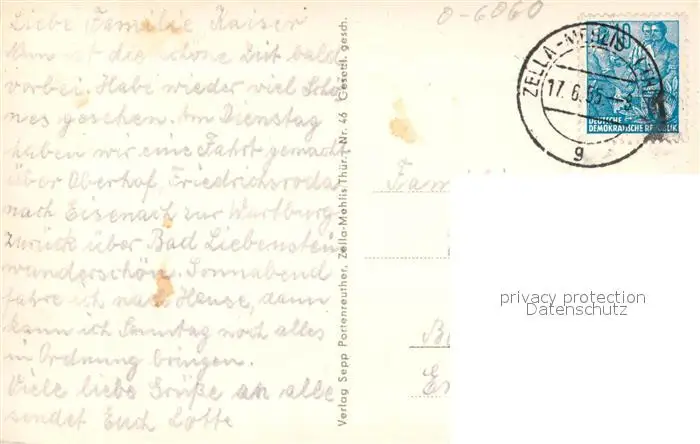 Liebe Familie Kaiser
Nun ist die schöne Zeit bald
vorbei. Habe wieder viel Schö-
nes gesehen. Am Dienstag
haben wir eine Fahrt gemacht
über Oberhof, Friedrichsroda
nach Eisenach zur Wartburg
zurück über Bad Liebenstein
wunderschön. Sonnabend
fahre ich nach Hause, dann
kann ich Sonntag noch alles
in Ordnung bringen.
Viele liebe Grüße an alle
sendet Euch Lotte
Verlag Sepp Portenreuther, Zella-Mehlis Thür. Nr. 46 Gesetzl. gesch.
0-6060
ZELLA-MEHLIS
17.6.55
g
10
DEUTSCHE
DEMOKRATISCHE REPUBLIK
Fam
privacy protection
Datenschutz